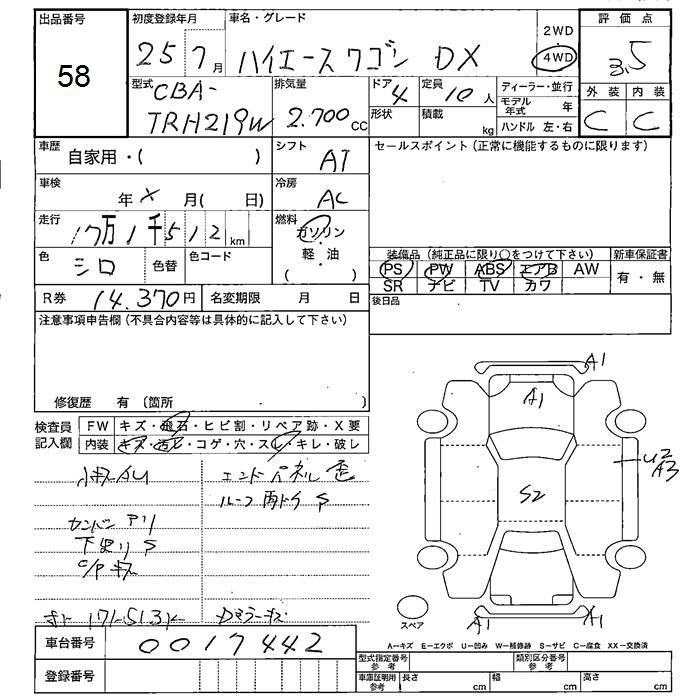 出品番号
58
初度登録年月
25 7月
車名・グレード
ハイエースワゴン DX
2WD
4WD
評価点
3.5
外装 内装
C C
型式
CBA-
TRH219W
排気量
2.700 CC
ドア 4
形状
定員 10人
積載 kg
ディーラー・並行
モデル年式 年
ハンドル 左・右
車歴 自家用・( )
シフト AT
セールスポイント(正常に機能するものに限ります)
車検 年 X 月( 日)
冷房 AC
走行 17万1千512km
燃料
ガソリン
・
軽・油
( )
色 シロ
色替
色コード
装備品(純正品に限り○をつけて下さい)
PS PW ABS エアB AW
SR ナビ TV カワ
新車保証書
有・無
R券 14.370円
名変期限 月 日
後日品
注意事項申告欄(不具合内容等は具体的に記入して下さい)
修復歴 有(箇所 )
検査員
記入欄
FW キズ・飛石・ヒビ割・リペア跡・X要
内装 キズ・汚レ・コゲ・穴・スレ・キレ・破レ
小キズAU
エンドパネル歪
ルーフ雨トイS
カンバンアリ
下廻りS
C/Pキズ
A1
A1
U2
A3
S2
A1
A1
スペア
車台番号 0017442
A－キズ E－エクボ U－凹み W－補修跡 S－サビ C－腐食 XX－交換済
登録番号
型式指定番号
参考
類別区分番号
参考
車庫証明用
参考
長さ cm
幅 cm
高さ cm